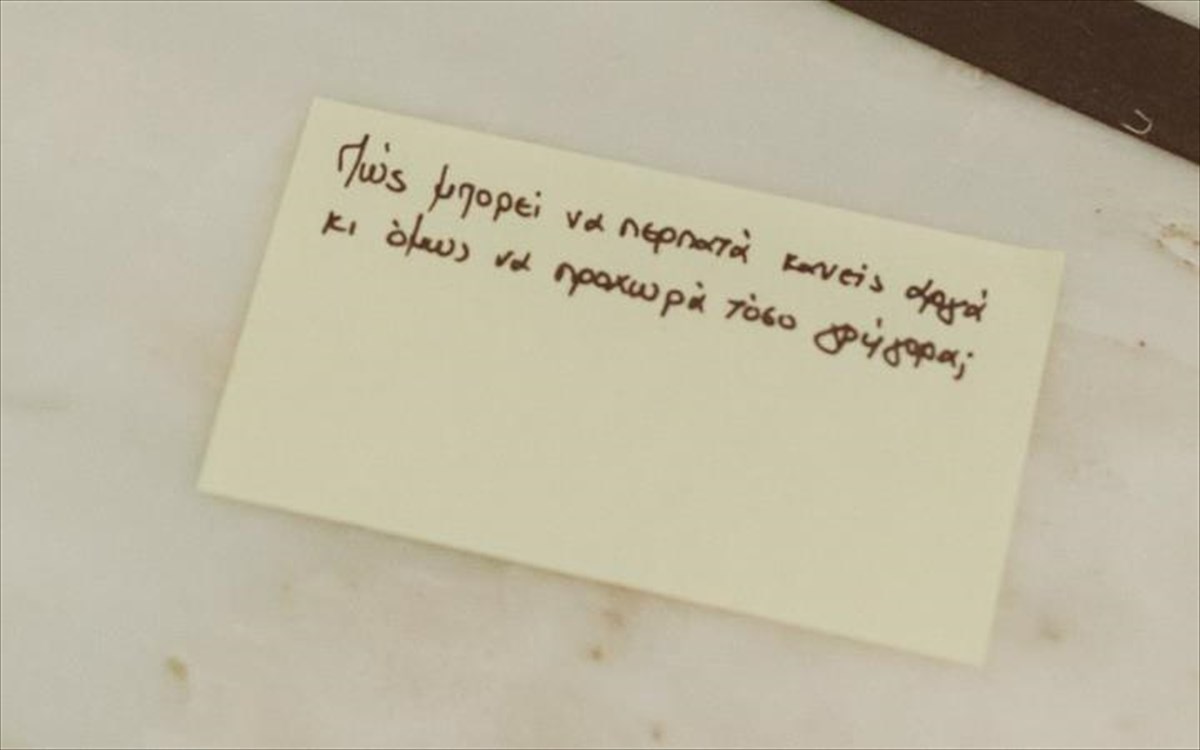 Πώς μπορεί να περπατά κανείς αργά
κι όμως να προχωρά τόσο γρήγορα;